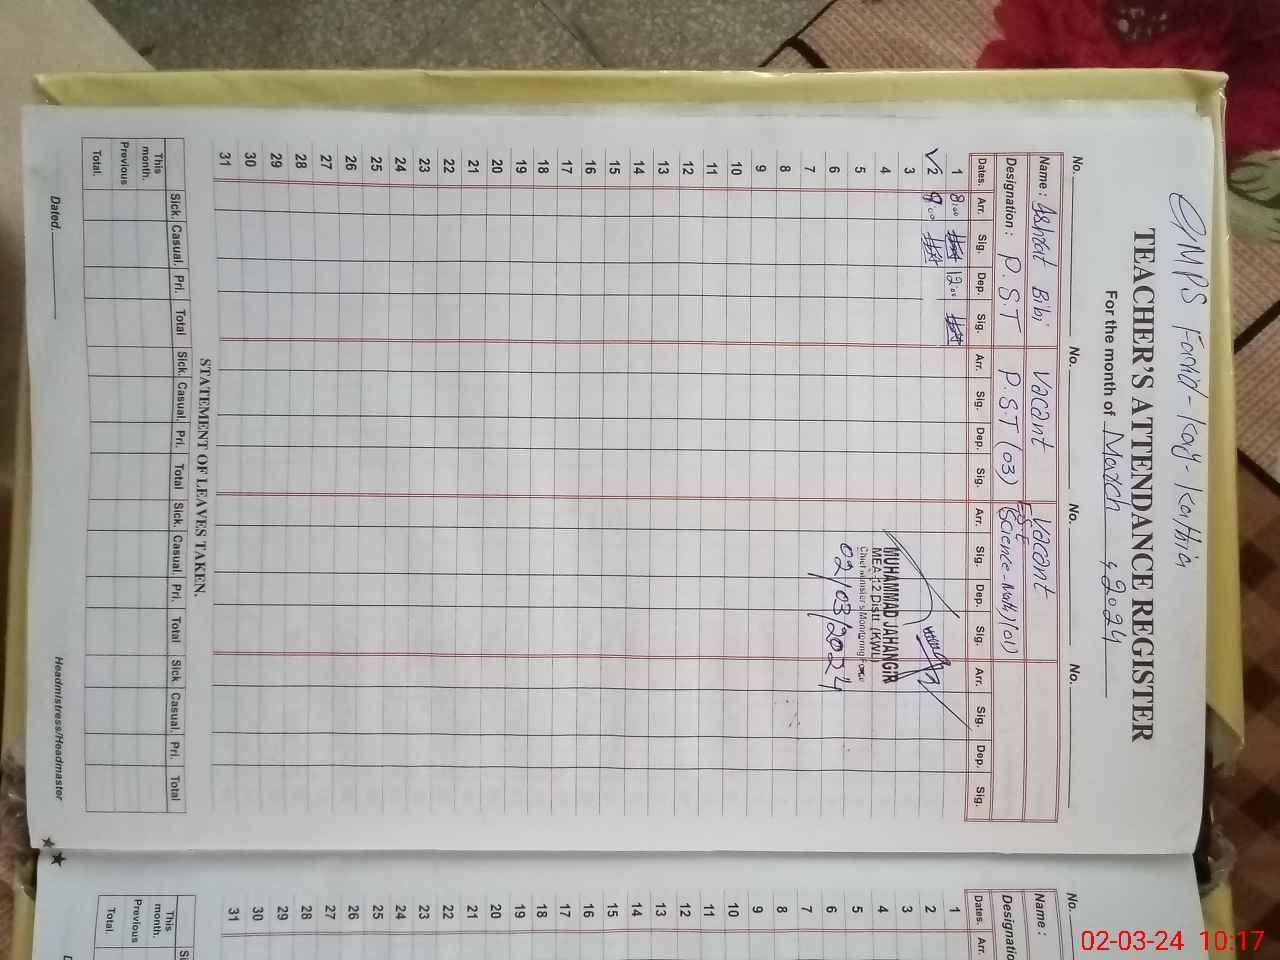 GMPS Farid-Kay-Kathia
TEACHER'S ATTENDANCE REGISTER
For the month of March , 2024
No. No. No. No.
Name : Ishrat Bibi Vacant Vacant
Designation : P.S.T P.S.T (03) E.S.E (Science-Math) (01)
Dates. Arr. Sig. Dep. Sig. Arr. Sig. Dep. Sig. Arr. Sig. Dep. Sig. Arr. Sig. Dep. Sig.
1 8:00 12:00
2 8:00
3
4
5
6
7
8
9
10
11
12
13
14
15
16
17
18
19
20
21
22
23
24
25
26
27
28
29
30
31
MUHAMMAD JAHANGIR
MEA-12 Distt (KWL)
Chief Minister's Monitoring Force
02/03/2024
STATEMENT OF LEAVES TAKEN.
Sick. Casual. Pri. Total Sick. Casual. Pri. Total Sick. Casual. Pri. Total Sick Casual. Pri. Total
This month.
Previous
Total.
Dated. Headmistress/Headmaster
No.
Name :
Designatio
Dates. Arr.
1
2
3
4
5
6
7
8
9
10
11
12
13
14
15
16
17
18
19
20
21
22
23
24
25
26
27
28
29
30
31
Si
This month.
Previous
Total.
02-03-24 10:17